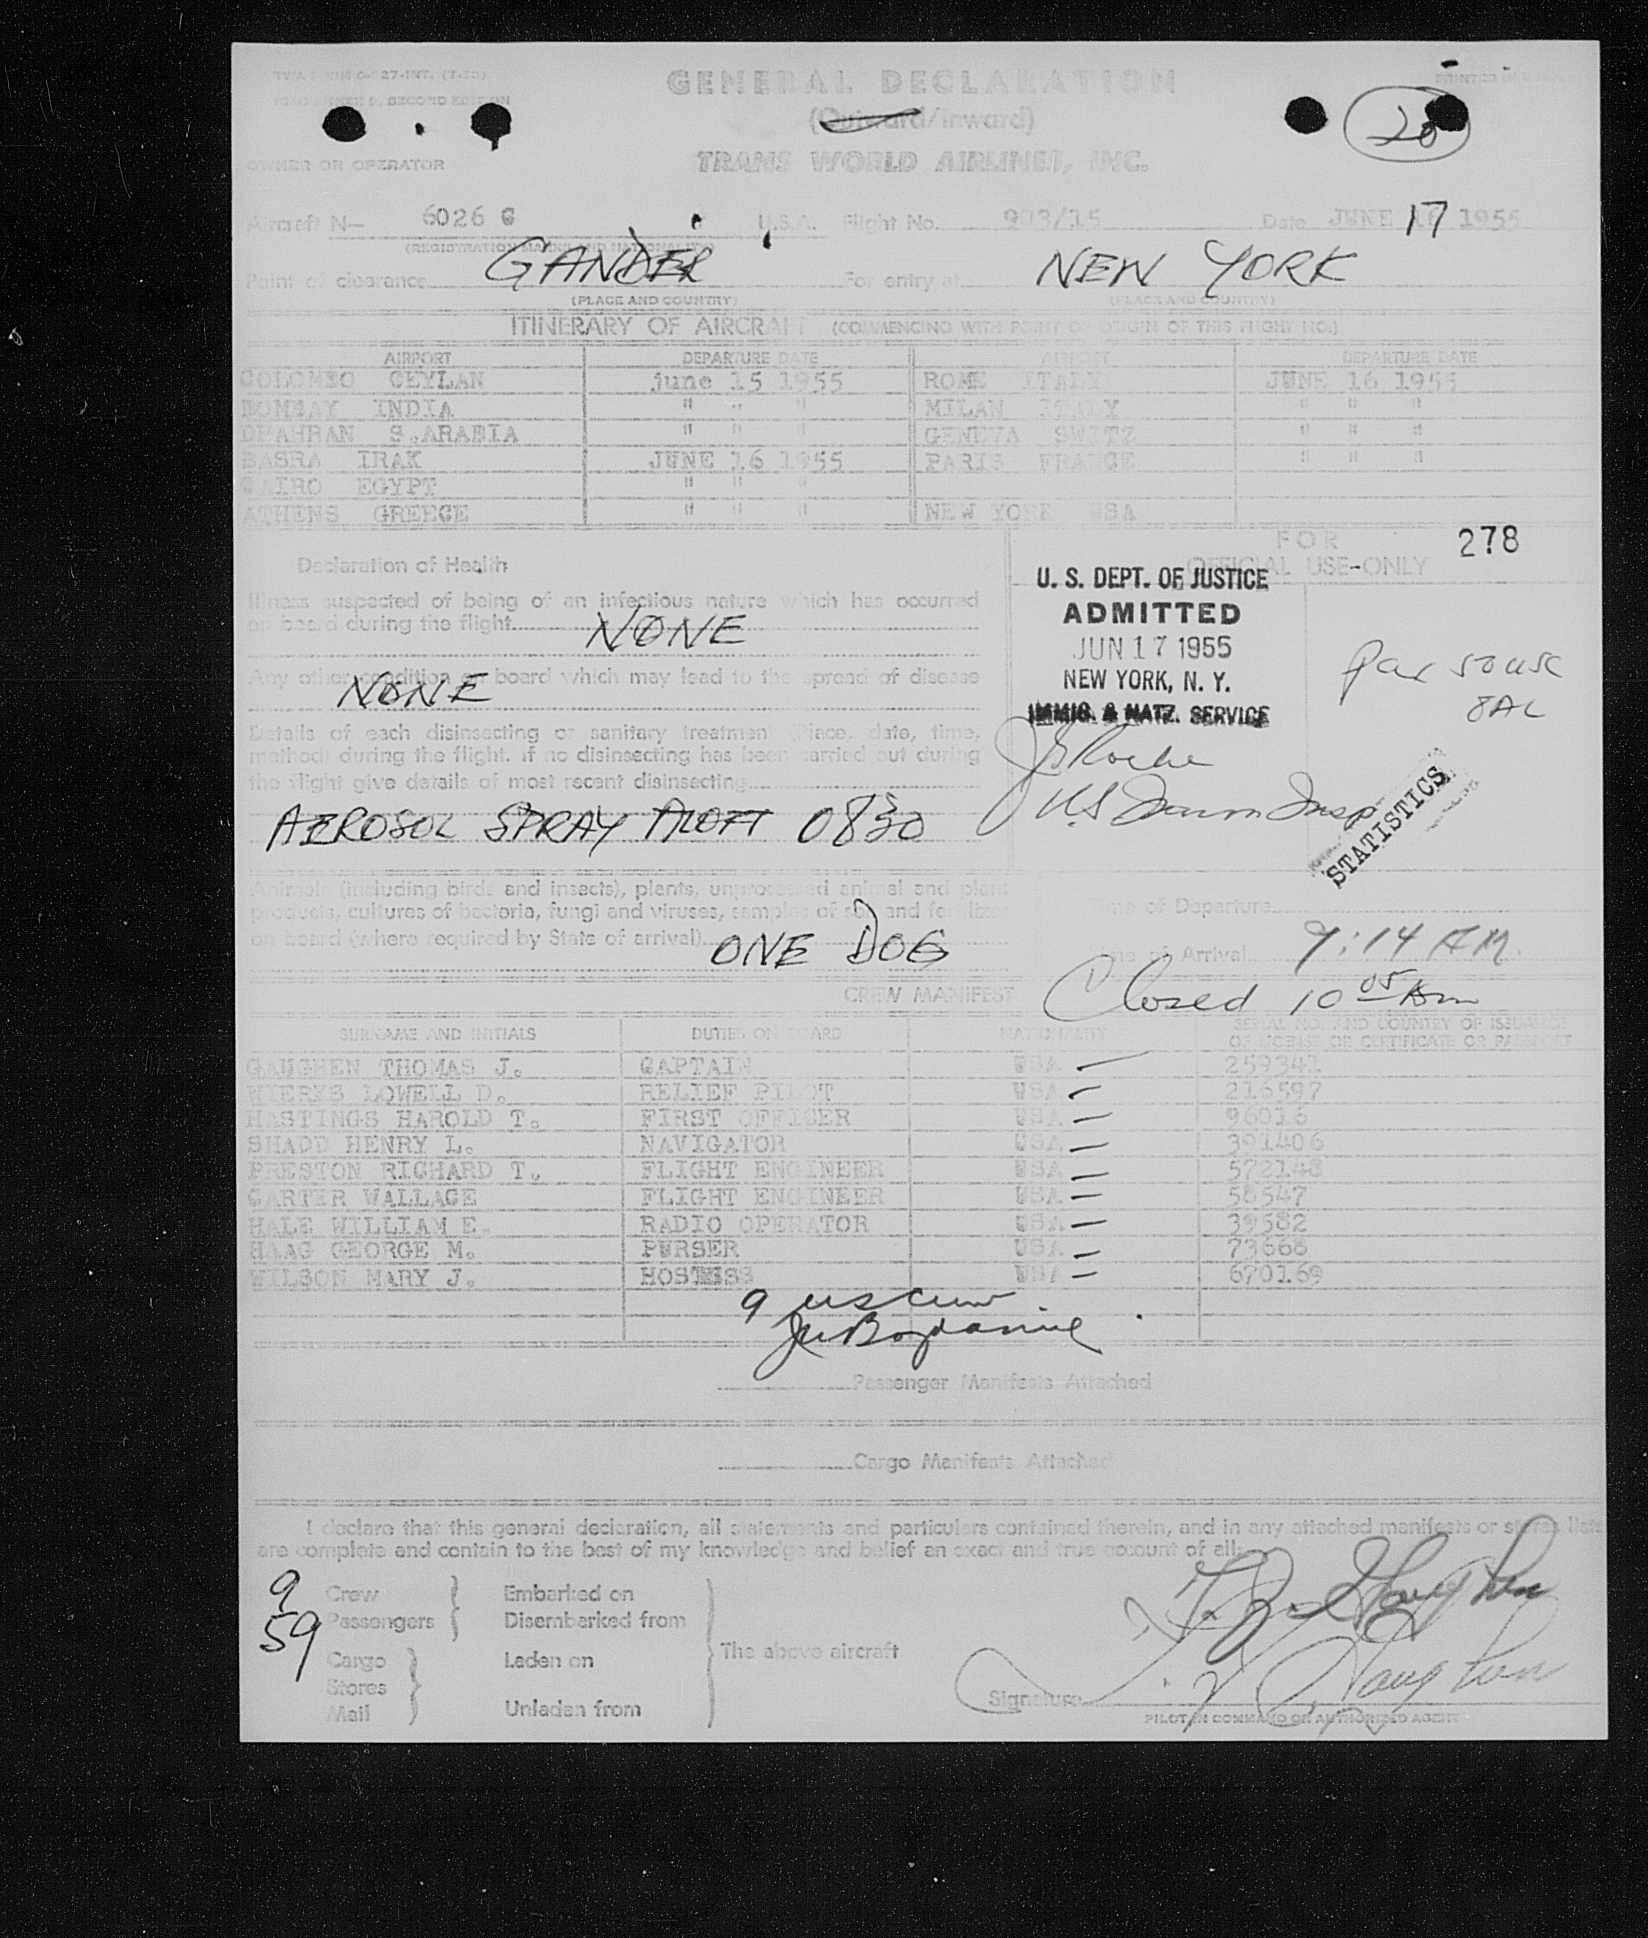 GENERAL DECLARATION
(Outward/Inward)
TRANS WORLD AIRLINES, INC.
28
OWNER OR OPERATOR
Aircraft N— 6026 C U.S.A. Flight No. 903/15 Date JUNE 17 1955
(REGISTRATION MARKS AND NATIONALITY)
Point of clearance GANDER For entry at NEW YORK
(PLACE AND COUNTRY) (PLACE AND COUNTRY)
ITINERARY OF AIRCRAFT (COMMENCING WITH POINT OF ORIGIN OF THIS FLIGHT NO.)
AIRPORT DEPARTURE DATE AIRPORT DEPARTURE DATE
COLOMBO CEYLAN june 15 1955 ROME ITALY JUNE 16 1955
BOMBAY INDIA " " " MILAN ITALY " " "
DHAHRAN S.ARABIA " " " GENEVA SWITZ " " "
BASRA IRAK JUNE 16 1955 PARIS FRANCE " " "
CAIRO EGYPT " " "
ATHENS GREECE " " " NEW YORK USA
FOR
OFFICIAL USE ONLY
278
Declaration of Health
Illness suspected of being of an infectious nature which has occurred
on board during the flight NONE
Any other condition on board which may lead to the spread of disease
NONE
Details of each disinsecting or sanitary treatment (Place, date, time,
method) during the flight. If no disinsecting has been carried out during
the flight give details of most recent disinsecting
AEROSOL SPRAY ALOFT 0830
U. S. DEPT. OF JUSTICE
ADMITTED
JUN 17 1955
NEW YORK, N. Y.
IMMIG. & NATZ. SERVICE
US Imm Insp
STATISTICS
Animals (including birds and insects), plants, unprocessed animal and plant
products, cultures of bacteria, fungi and viruses, samples of soil and fertilizer
on board (where required by State of arrival) ONE DOG
Time of Departure
Time of Arrival 9:14 AM.
Closed 10 05 Am
CREW MANIFEST
SURNAME AND INITIALS DUTIES ON BOARD NATIONALITY SERIAL NO. AND COUNTRY OF ISSUANCE
OF LICENSE OR CERTIFICATE OR PASSPORT
GAUGHEN THOMAS J. CAPTAIN USA 259341
WIERKS LOWELL D. RELIEF PILOT USA 216597
HASTINGS HAROLD T. FIRST OFFICER USA 96016
SHADD HENRY L. NAVIGATOR USA 391406
PRESTON RICHARD T. FLIGHT ENGINEER USA 572148
CARTER WALLACE FLIGHT ENGINEER USA 58547
HALE WILLIAM E. RADIO OPERATOR USA 39582
HAAG GEORGE M. PURSER USA 73668
WILSON MARY J. HOSTESS USA 670169
9 us crew
Passenger Manifests Attached
Cargo Manifests Attached
I declare that this general declaration, all statements and particulars contained therein, and in any attached manifests or stores lists
are complete and contain to the best of my knowledge and belief an exact and true account of all:
9 Crew Embarked on
59 Passengers Disembarked from
The above aircraft
Cargo Laden on
Stores
Mail Unladen from
Signature
PILOT IN COMMAND OR AUTHORIZED AGENT